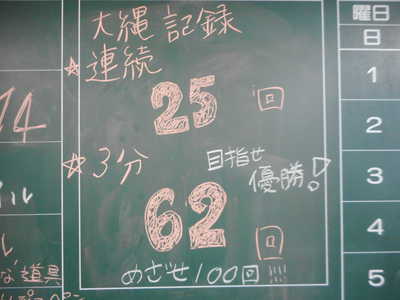 大縄記録
☆連続
25回
☆3分
目指せ
優勝!
62回
めざせ100回!!!!
曜日
日
1
2
3
4
5
14
ル
ル
な道具